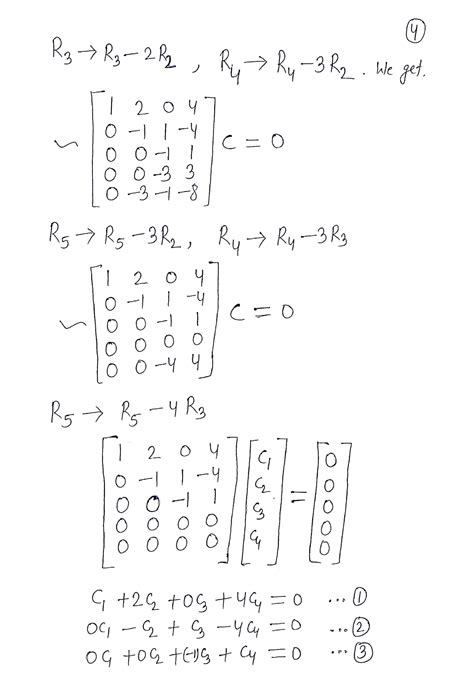 ④
R₃ → R₃ − 2R₂ , R₄ → R₄ − 3R₂ . We get.
1 2 0 4
0 −1 1 −4
∼ 0 0 −1 1 C = 0
0 0 −3 3
0 −3 −1 −8
R₅ → R₅ − 3R₂, R₄ → R₄ − 3R₃
1 2 0 4
0 −1 1 −4
∼ 0 0 −1 1 C = 0
0 0 0 0
0 0 −4 4
R₅ → R₅ − 4R₃
1 2 0 4 C₁ 0
0 −1 1 −4 C₂ 0
0 0 −1 1 C₃ = 0
0 0 0 0 C₄ 0
0 0 0 0 0
C₁ + 2C₂ + 0C₃ + 4C₄ = 0 ... ①
0C₁ − C₂ + C₃ − 4C₄ = 0 ... ②
0C₁ + 0C₂ + (−1)C₃ + C₄ = 0 ... ③